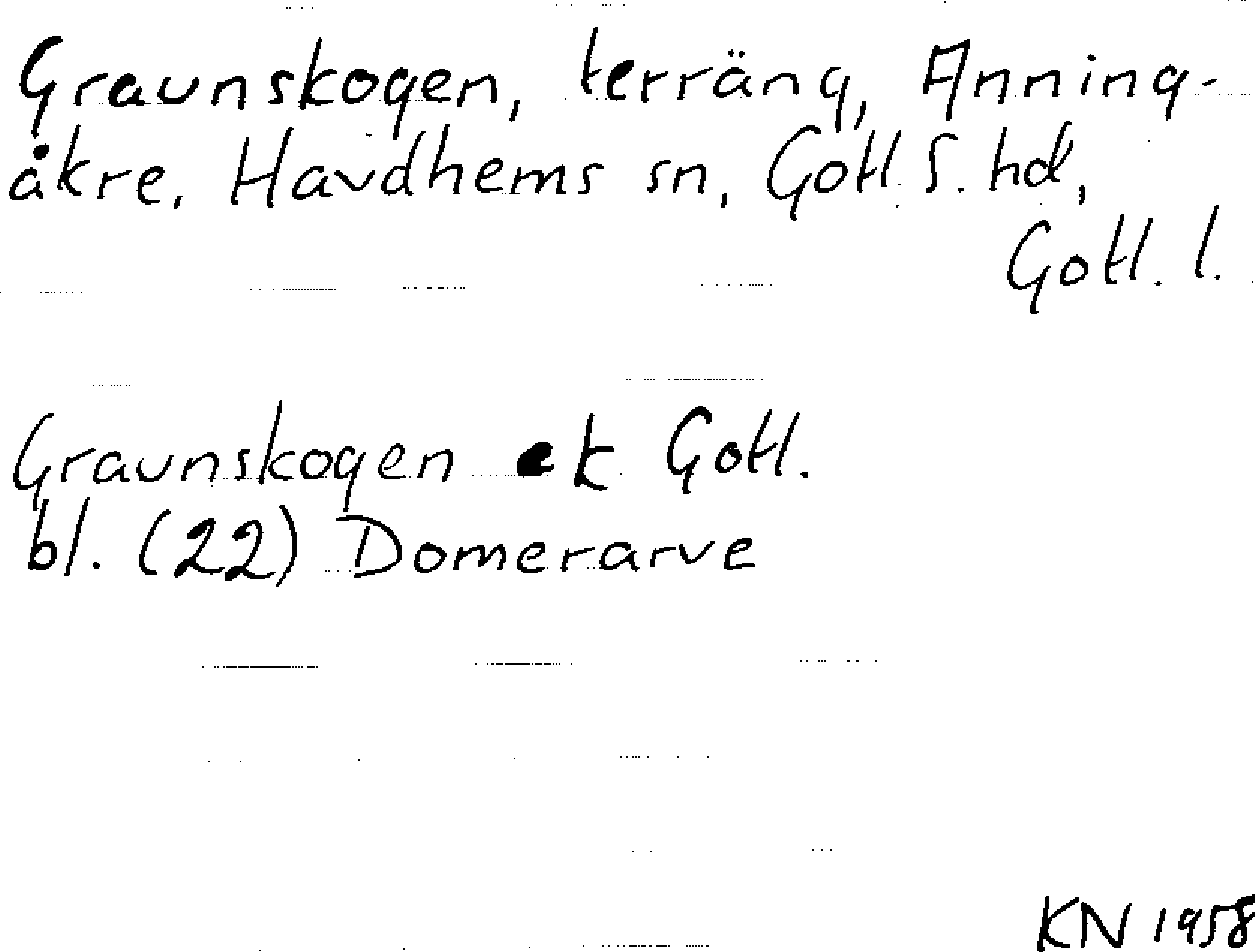 Graunskogen, terräng, Anning-
åkre, Havdhems sn, Gotl. S. hd,
Gotl. l.
Graunskogen ek Gotl.
bl. (22) Domerarve
KN 1958